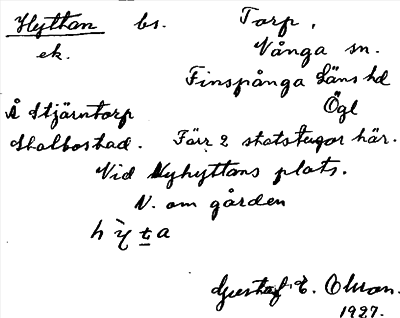 Hyttan bs. Torp.
ek. Vånga sn.
Finspånga Läns hd
Å Stjärntorp Ögl
Skolbostad. Förr 2 statstugor här.
Vid Nyhyttans plats.
V. om gården
Gustaf E. Olson.
1927.